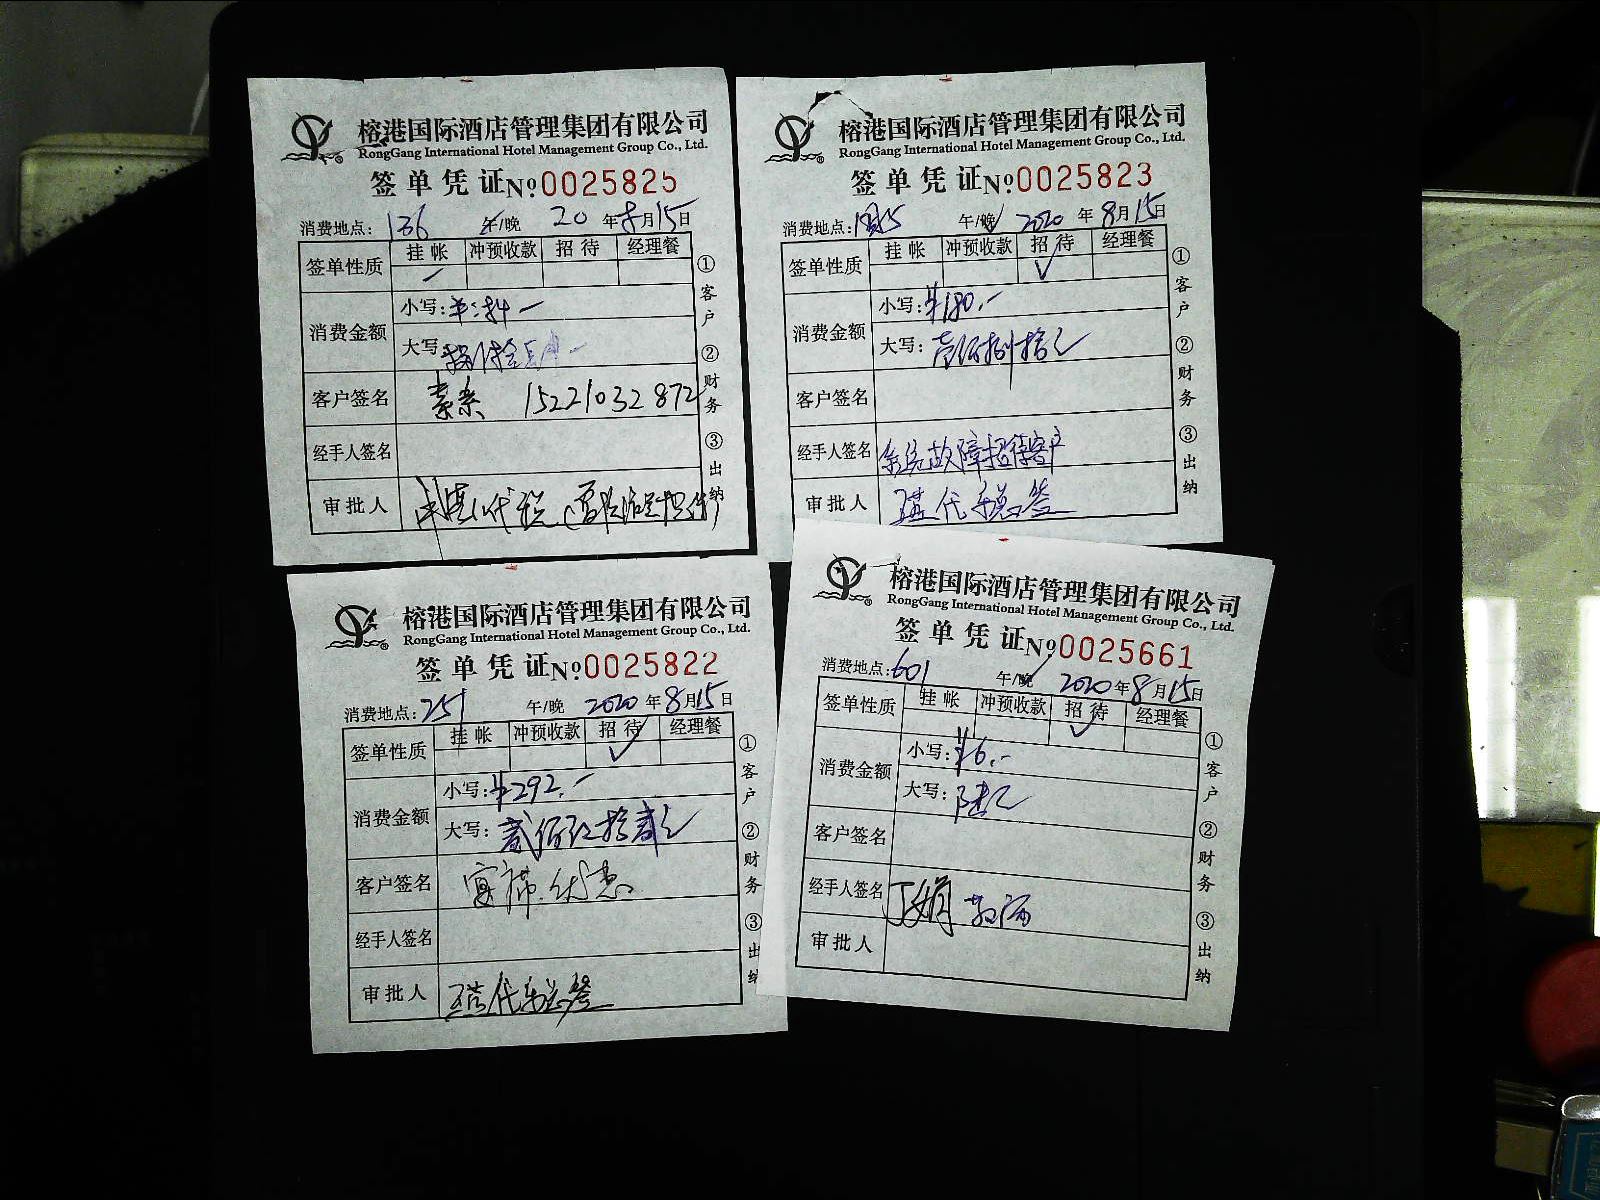 榕港国际酒店管理集团有限公司
RongGang International Hotel Management Group Co., Ltd.
签单凭证 No 0025825
消费地点: 136 午/晚 20 年 8月15日
签单性质 挂帐 冲预收款 招待 经理餐
消费金额 小写:
大写
客户签名 15221032872
经手人签名
审批人
①客户 ②财务 ③出纳
榕港国际酒店管理集团有限公司
RongGang International Hotel Management Group Co., Ltd.
签单凭证 No 0025823
消费地点: 午/晚 2020 年 8月15日
签单性质 挂帐 冲预收款 招待 经理餐
√
消费金额 小写: ¥180.-
大写: 壹佰捌拾元
客户签名
经手人签名 系统故障招待客户
审批人 代 签
①客户 ②财务 ③出纳
榕港国际酒店管理集团有限公司
RongGang International Hotel Management Group Co., Ltd.
签单凭证 No 0025822
消费地点: 251 午/晚 2020 年 8月15日
签单性质 挂帐 冲预收款 招待 经理餐
√
消费金额 小写: ¥292.-
大写: 贰佰玖拾贰元
客户签名 宴席优惠
经手人签名
审批人 代 签
①客户 ②财务 ③出纳
榕港国际酒店管理集团有限公司
RongGang International Hotel Management Group Co., Ltd.
签单凭证 No 0025661
消费地点: 601 午/晚 2020 年 8月15日
签单性质 挂帐 冲预收款 招待 经理餐
√
消费金额 小写: ¥6.-
大写: 陆元
客户签名
经手人签名 丁娟
审批人
①客户 ②财务 ③出纳